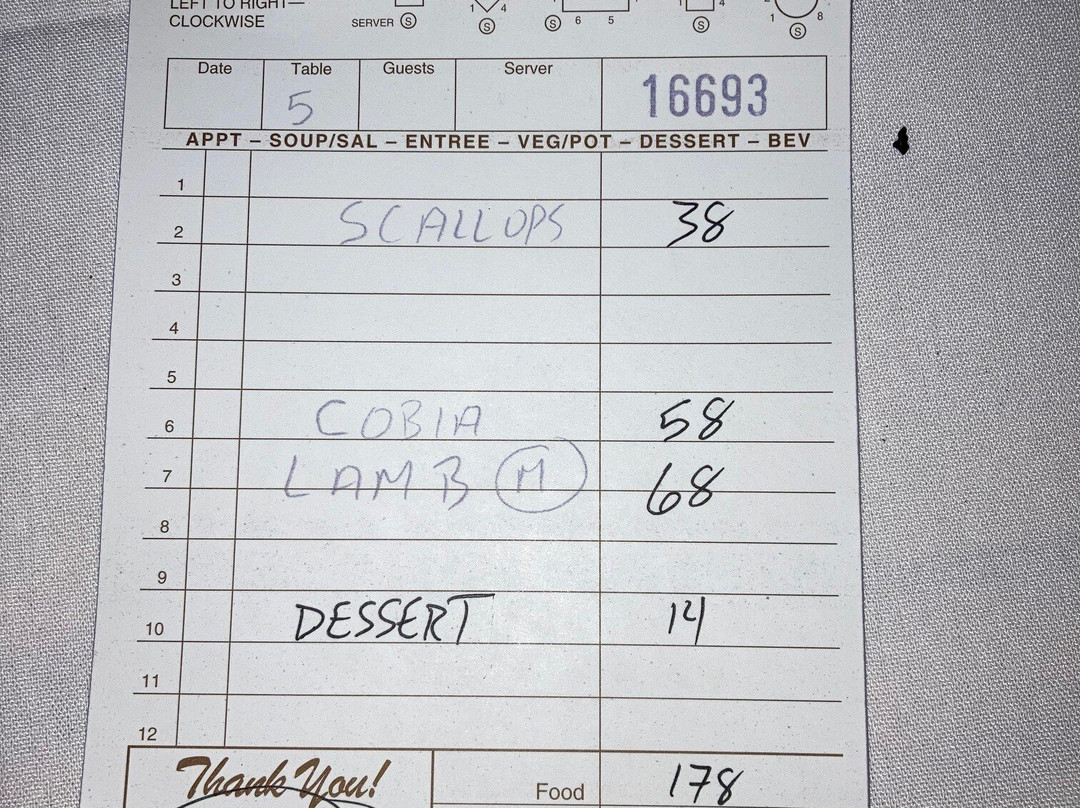 LEFT TO RIGHT—
CLOCKWISE
SERVER S
1 S 4
S 6 5
1 S 4
1 S 8
Date Table Guests Server 16693
5
APPT – SOUP/SAL – ENTREE – VEG/POT – DESSERT – BEV
1
2 SCALLOPS 38
3
4
5
6 COBIA 58
7 LAMB M 68
8
9
10 DESSERT 14
11
12
Thank You! Food 178